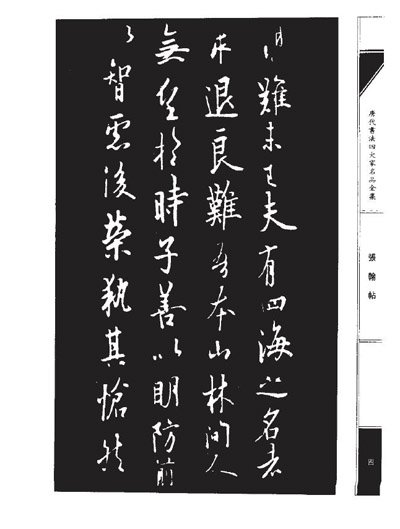 難未已夫有四海之名者
求退良難吾本山林間人
無望於時子善以明防前
以智慮後榮執其愴然
唐代書法四大家名品全集
張翰帖
四